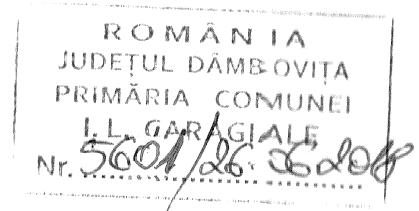 ROMÂNIA
JUDEȚUL DÂMBOVIȚA
PRIMĂRIA COMUNEI
I.L. CARAGIALE
Nr. 5601/26.06.2018